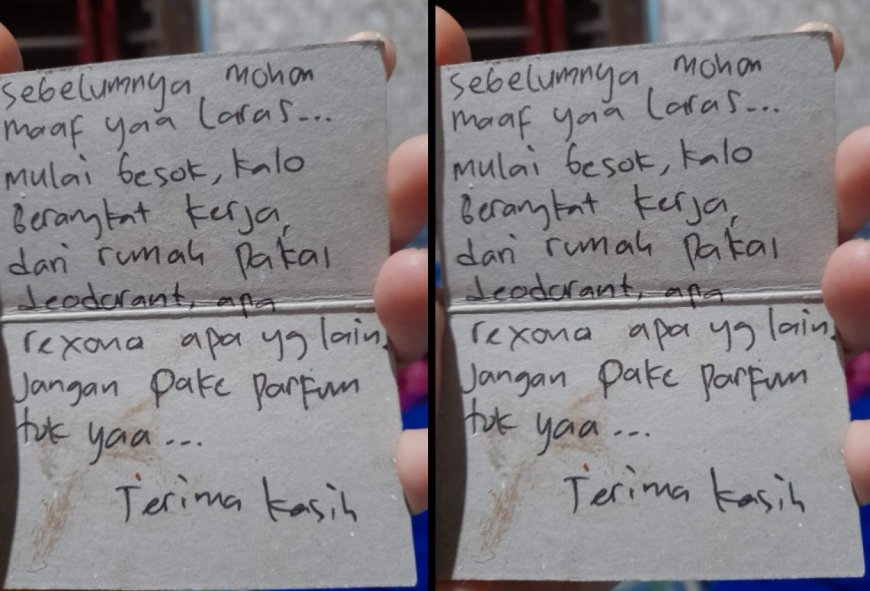 sebelumnya mohon
maaf yaa Laras...
mulai besok, kalo
berangkat kerja,
dari rumah pakai
deodorant, apa
rexona apa yg lain.
Jangan pake parfum
tok yaa...
Terima kasih
sebelumnya mohon
maaf yaa Laras...
mulai besok, kalo
berangkat kerja,
dari rumah pakai
deodorant, apa
rexona apa yg lain.
Jangan pake parfum
tok yaa...
Terima kasih